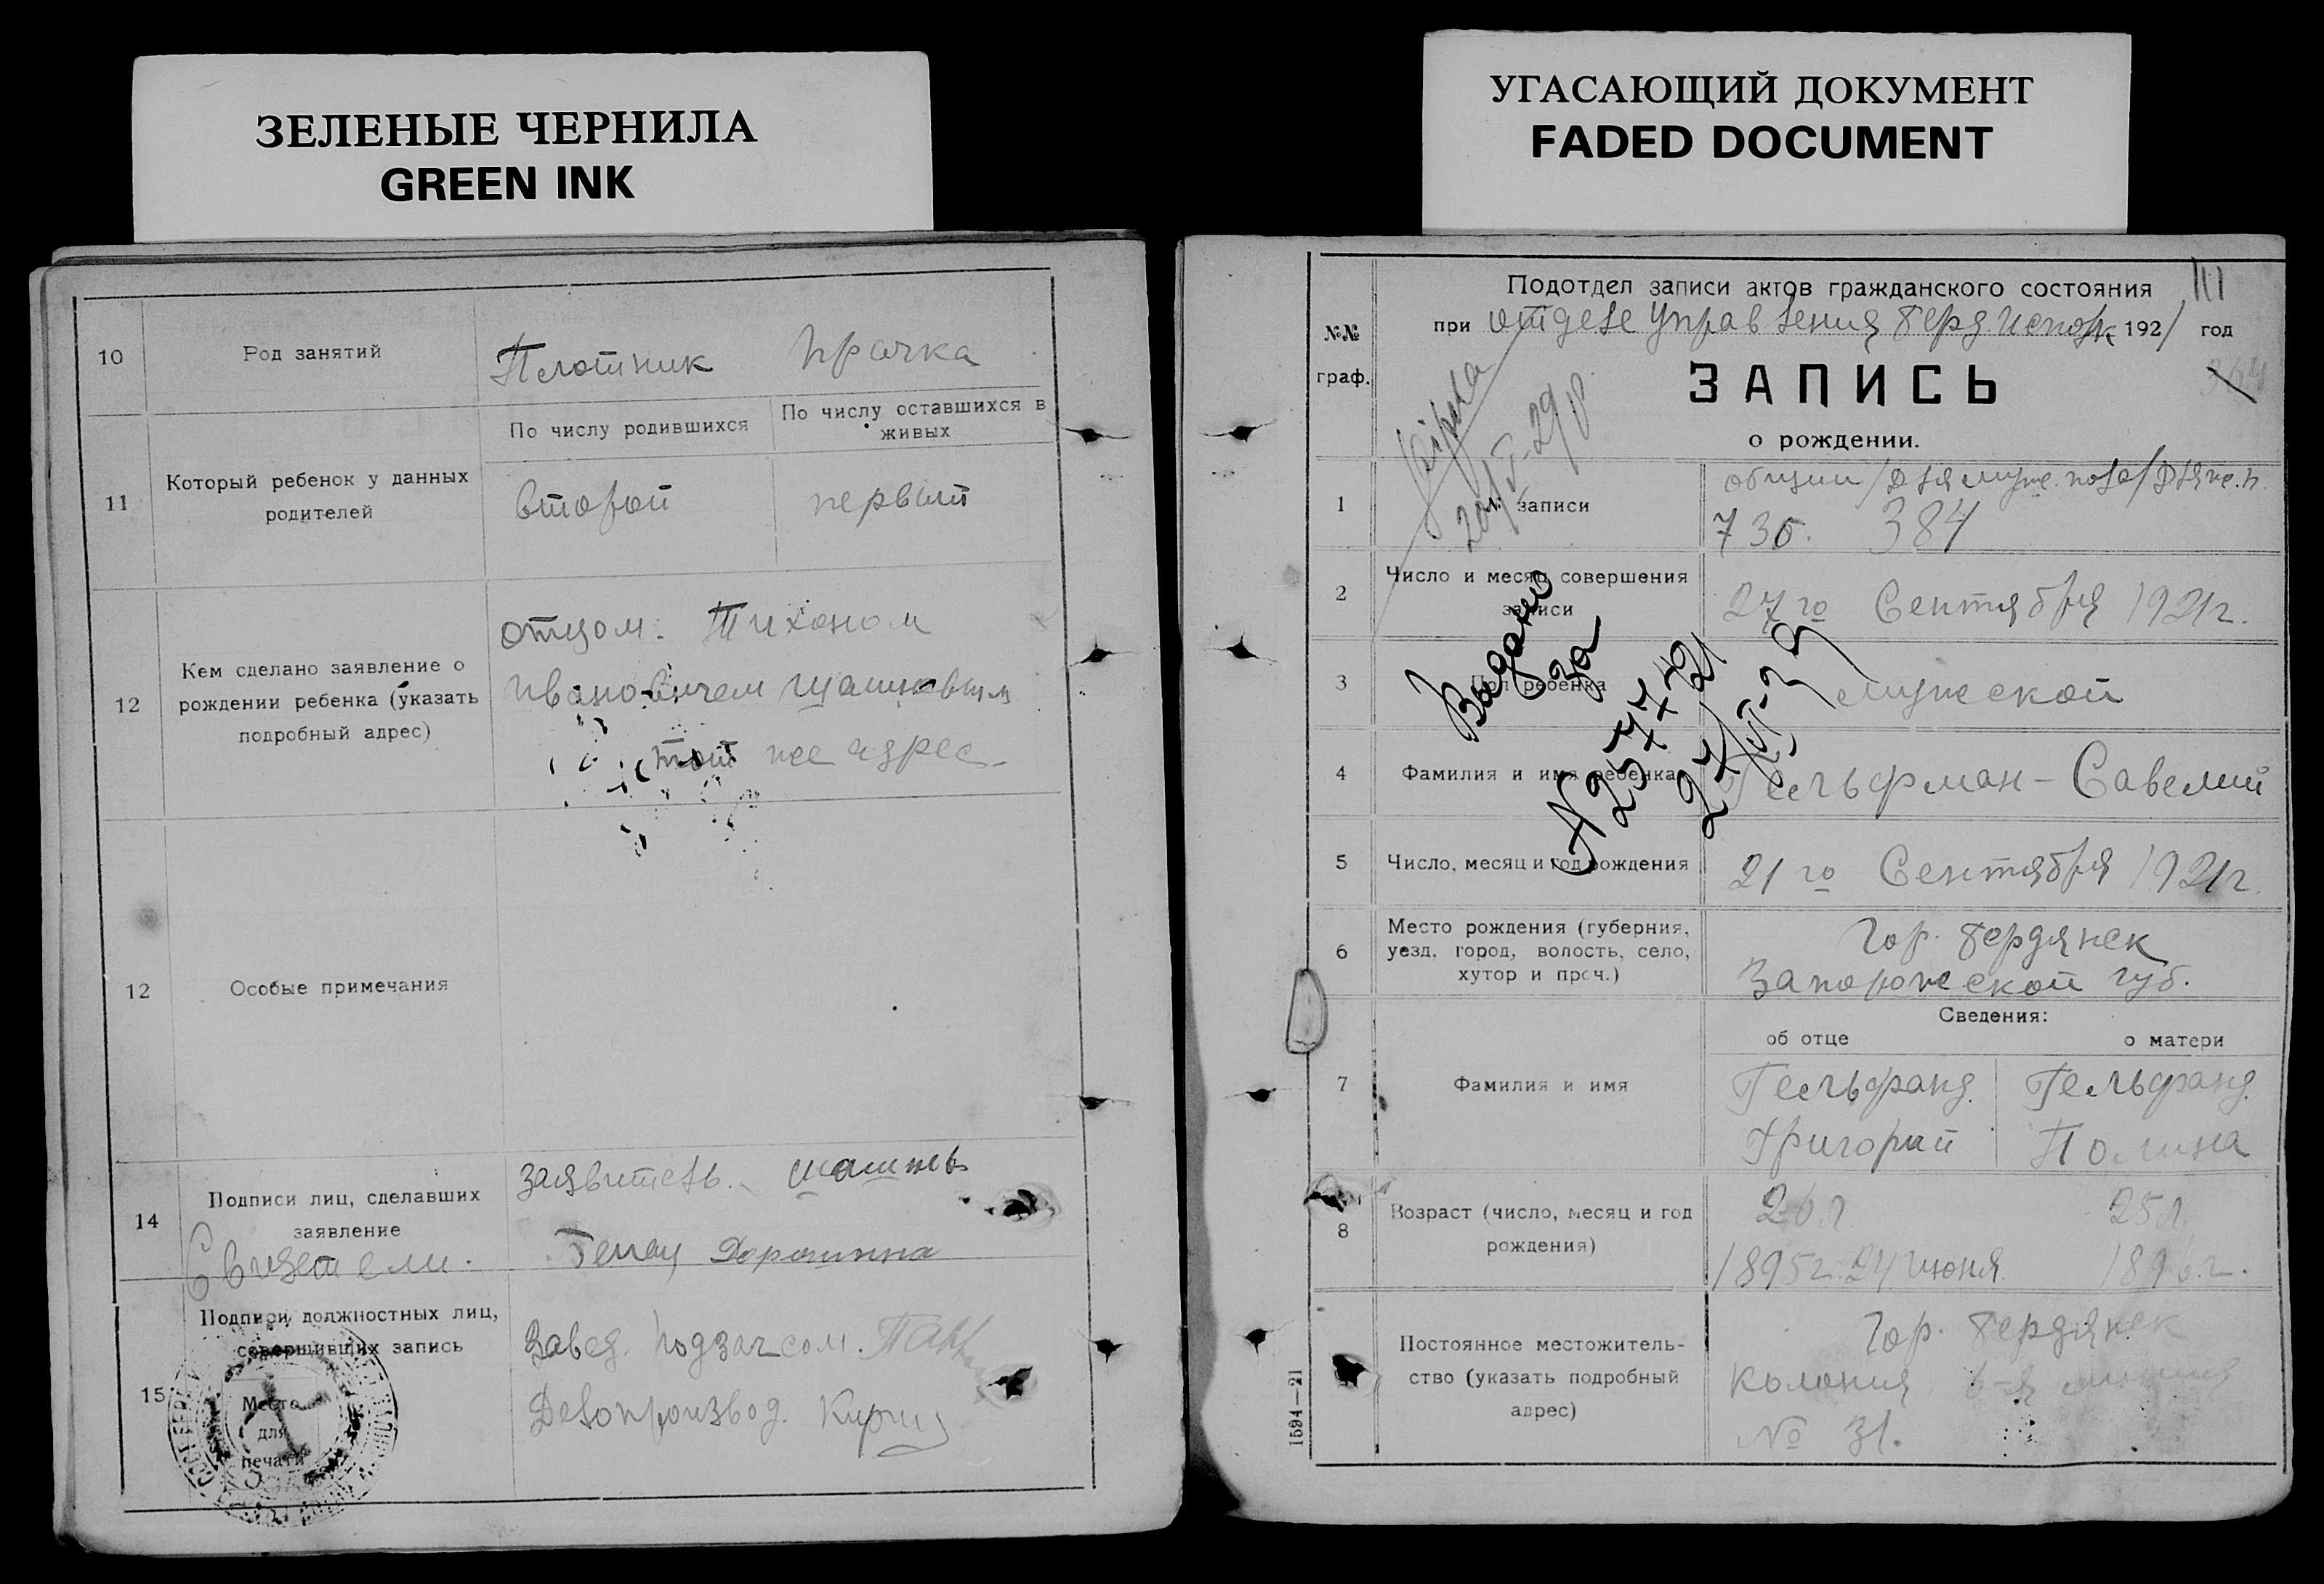 ЗЕЛЕНЫЕ ЧЕРНИЛА
GREEN INK
10
Род занятий
Плотник
прачка
11
Который ребенок у данных
родителей
По числу родившихся
По числу оставшихся в
живых
второй
первый
12
Кем сделано заявление о
рождении ребенка (указать
подробный адрес)
отцом: Тихоном
Ивановичем
тот же адрес
12
Особые примечания
14
Подписи лиц, сделавших
заявление
Свидетели.
заявитель.
15
Подписи должностных лиц,
совершивших запись
Место
для
печати
Завед. подзагсом.
Делопроизвод.
УГАСАЮЩИЙ ДОКУМЕНТ
FADED DOCUMENT
№№
граф.
Подотдел записи актов гражданского состояния
111
при отделе Управления Берд исполк 1921 год
ЗАПИСЬ
о рождении.
1
№ записи
общий / для муж. пола / для ж. п.
735. 384
2
Число и месяц совершения
записи
27го Сентября 1921г.
3
Пол ребенка
мужской
4
Фамилия и имя ребенка
Гельфман - Савелий
5
Число, месяц и год рождения
21го Сентября 1921г.
6
Место рождения (губерния,
уезд, город, волость, село,
хутор и проч.)
Гор. Бердянск
Запорожской губ.
Сведения:
об отце
о матери
7
Фамилия и имя
Гельфанд
Григорий
Гельфанд
Полина
8
Возраст (число, месяц и год
рождения)
26 л
1895г. 24 июня
25 л.
1896 г.
Постоянное местожитель-
ство (указать подробный
адрес)
Гор. Бердянск
Колония 6-я линия
№ 31.
1594—21
Выдано
за
№ 257721